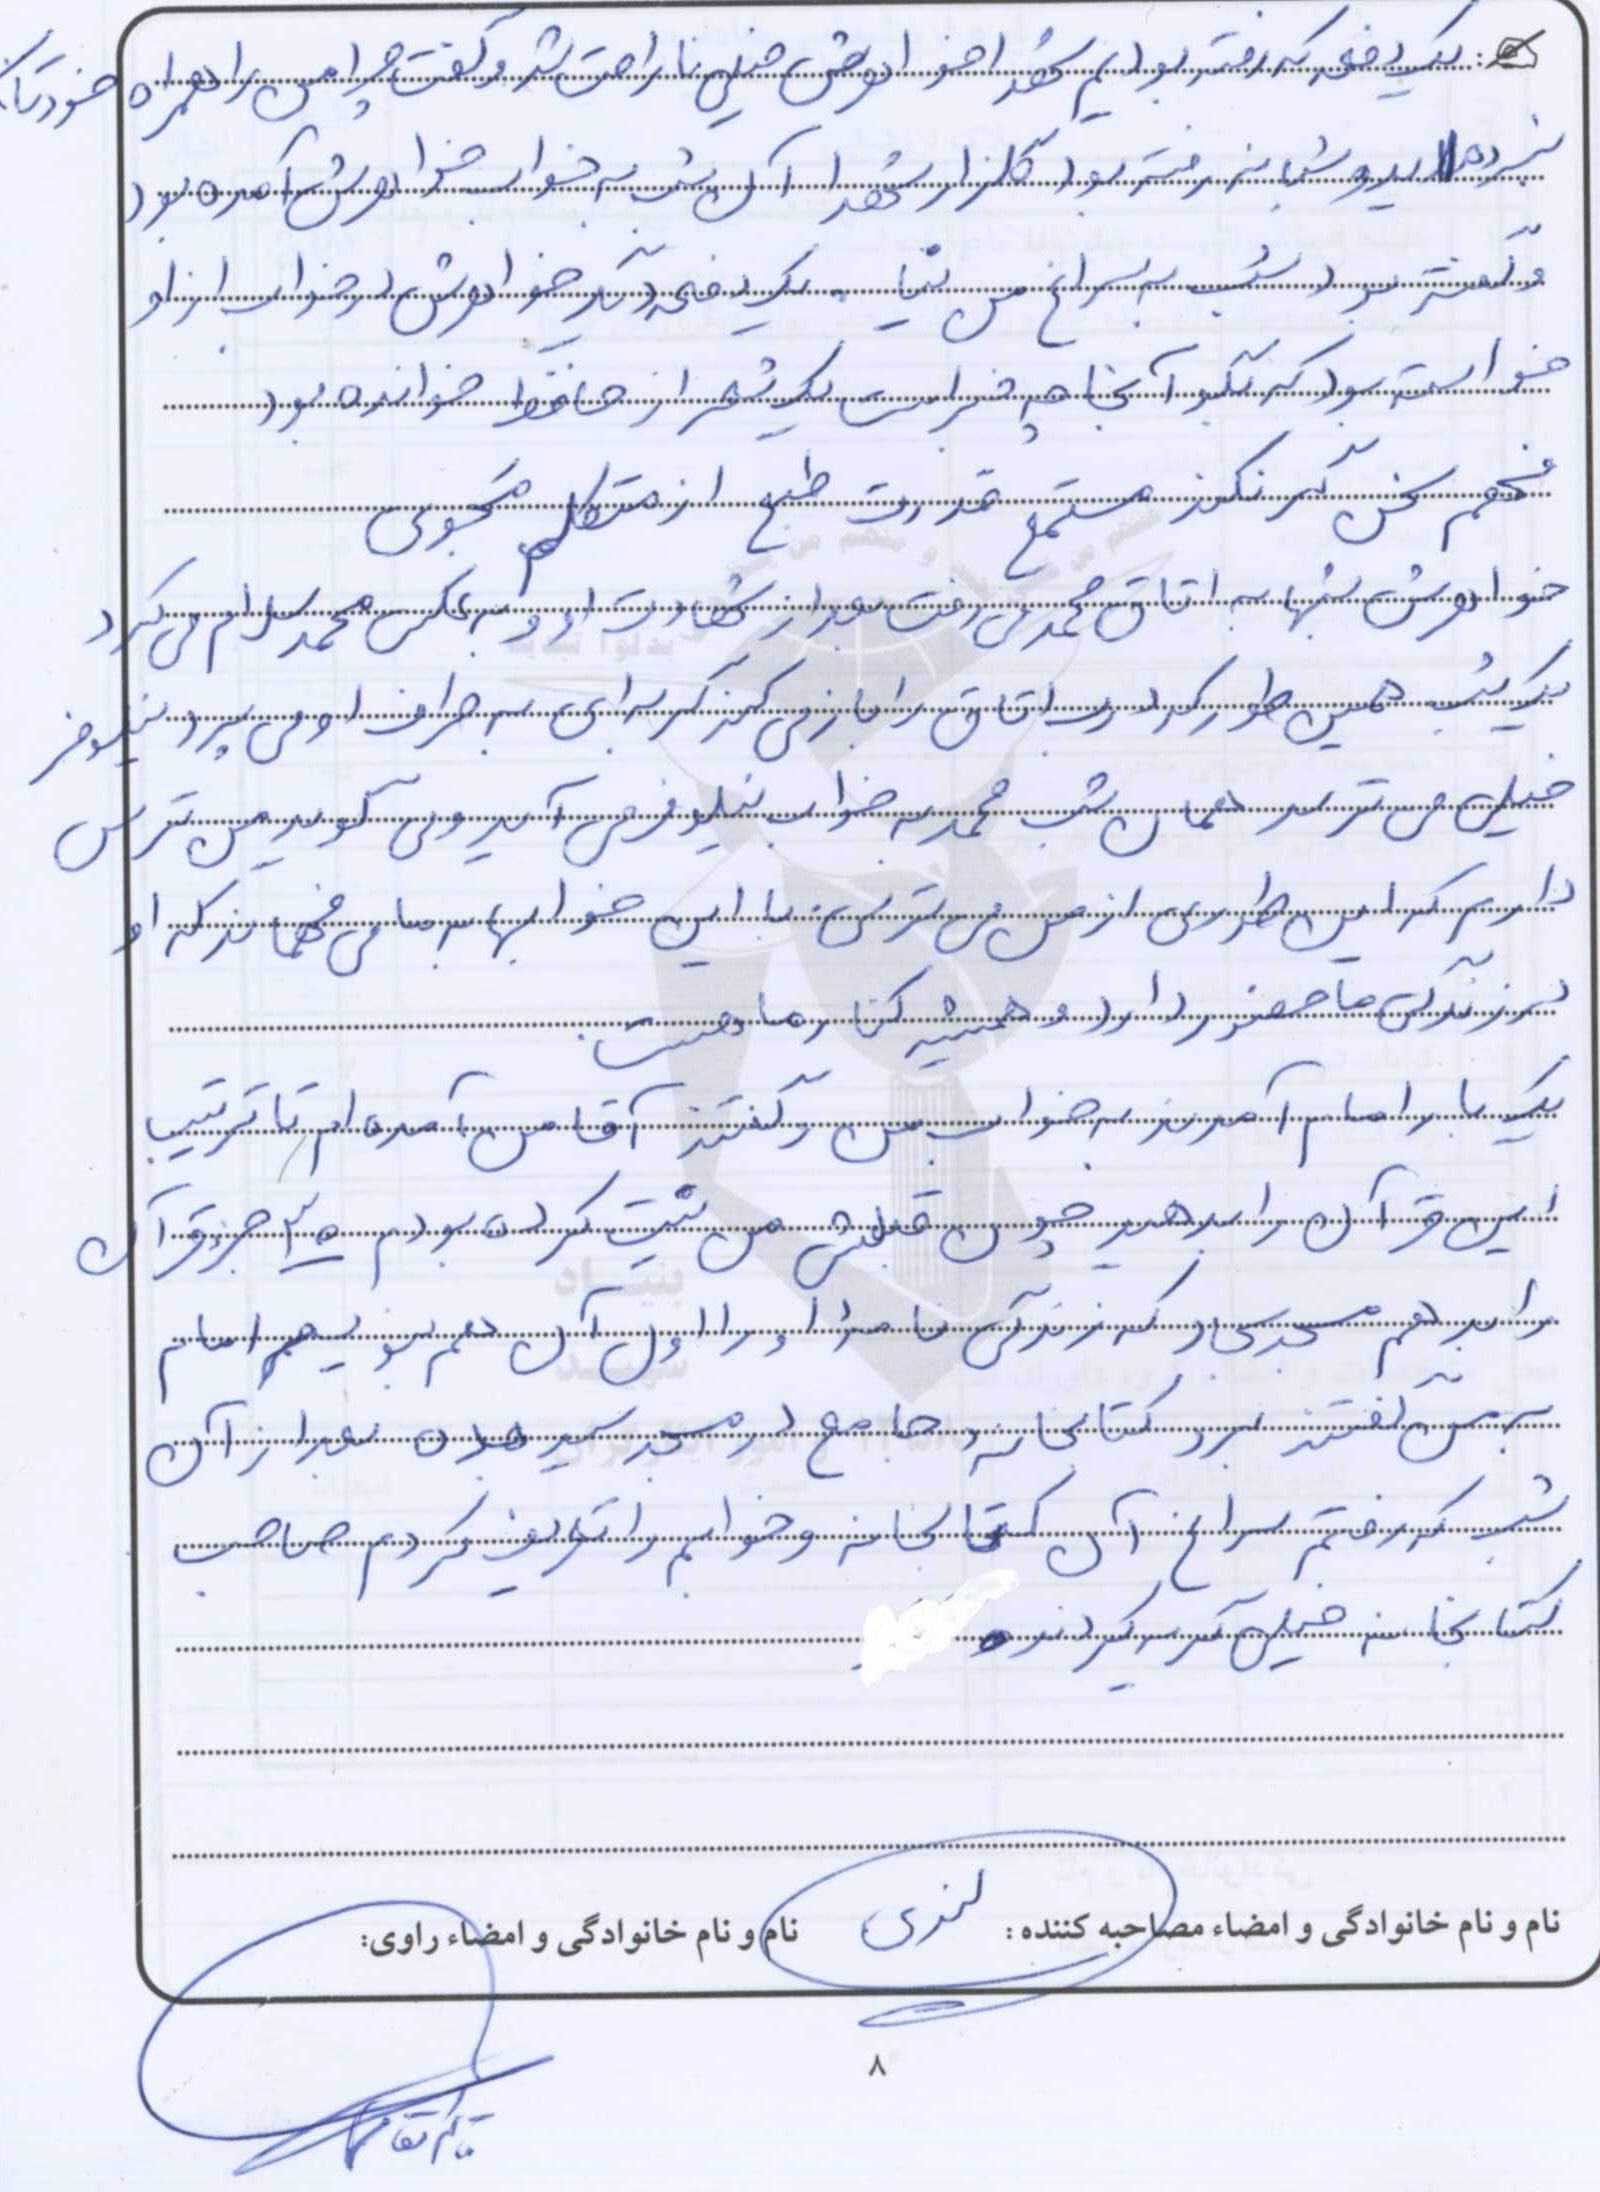 یک دفعه که رفته بودیم شهدا خواهرش خیلی ناراحت شد و گفت چرا من را همراه خودتان
نبرده اید و شبانه رفته بود گلزار شهدا آن شب به خواب خواهرش آمده بود
و گفته بود شب به سراغ من نیا . یک دفعه دیگر خواهرش در خواب از او
خواسته بود که بگو آنجا چه خبر است یک شعر از حافظ خوانده بود
فهم سخن گر نکند مستمع قدرت طبع از متکلم مجوی
خواهرش شبها به اتاق محمد می رفت بعد از شهادت او و به عکس محمد سلام می کرد
یک شب همین طور که درب اتاق را باز می کند گربه ای به طرف او می پرد نیلوفر
خیلی می ترسد همان شب محمد به خواب نیلوفر می آید و می گوید من ترس
دارم که این طوری از من می ترسی. با این خوابها به ما می فهماند که او
در زندگی ما حضور دارد و همیشه کنار ما هست.
یک بار امام آمدند به خواب من و گفتند آقا من آمده ام تا ترتیب
این قرآن را بدهید چون قبلش من نیت کرده بودم ۳۰ جزء قرآن
را بدهم مسجد که زندگی نامه او را اول آن هم بنویسم امام
به من گفتند ببرد کتابخانه جامع در مسجد سید بعد از آن
شب که رفتم سراغ آن کتابخانه و خوابم را تعریف کردم صاحب
کتابخانه خیلی گریه کردند.
نام و نام خانوادگی و امضاء مصاحبه کننده :
نام و نام خانوادگی و امضاء راوی:
۸